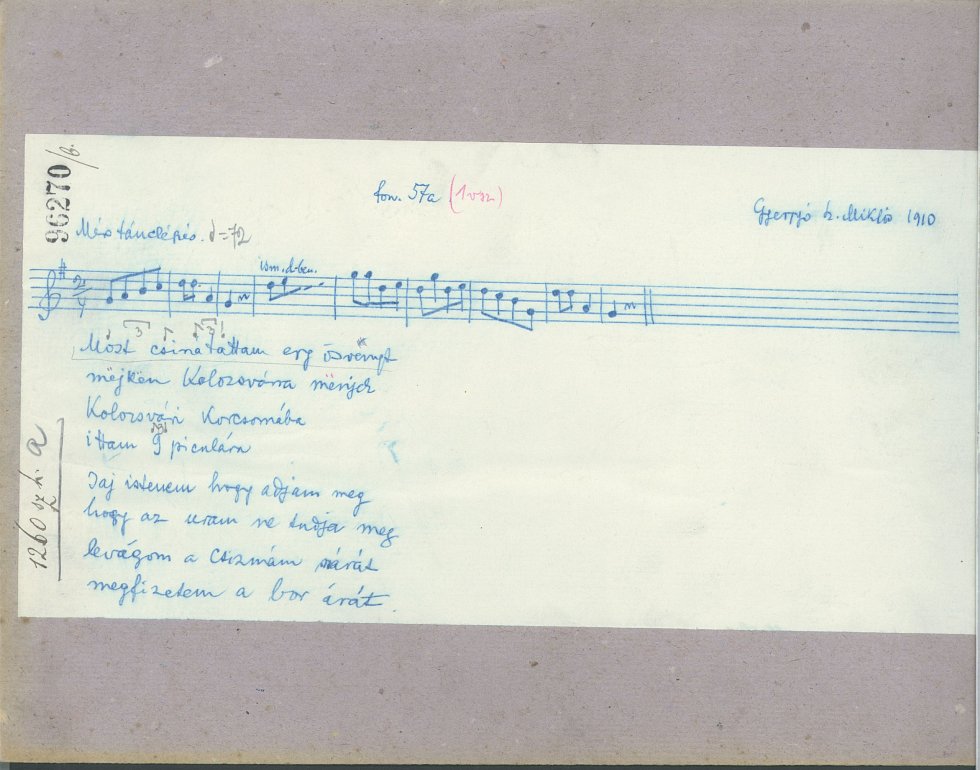 96270/b.
fon. 57a (1 vsz)
Gyergyó sz. Miklós 1910
Mérs tánclépés. = 72
2/4
ism. d-ben.
Most csinátattam egy ösvenyt
mëjkën Kolozsvárra mënjek
Kolozsvári Korcsomába
ittam I piculára
Jaj istenem hogy adjam meg
hogy az uram ne tudja meg
levágom a csizmám szárát
megfizetem a bor árát.
1260